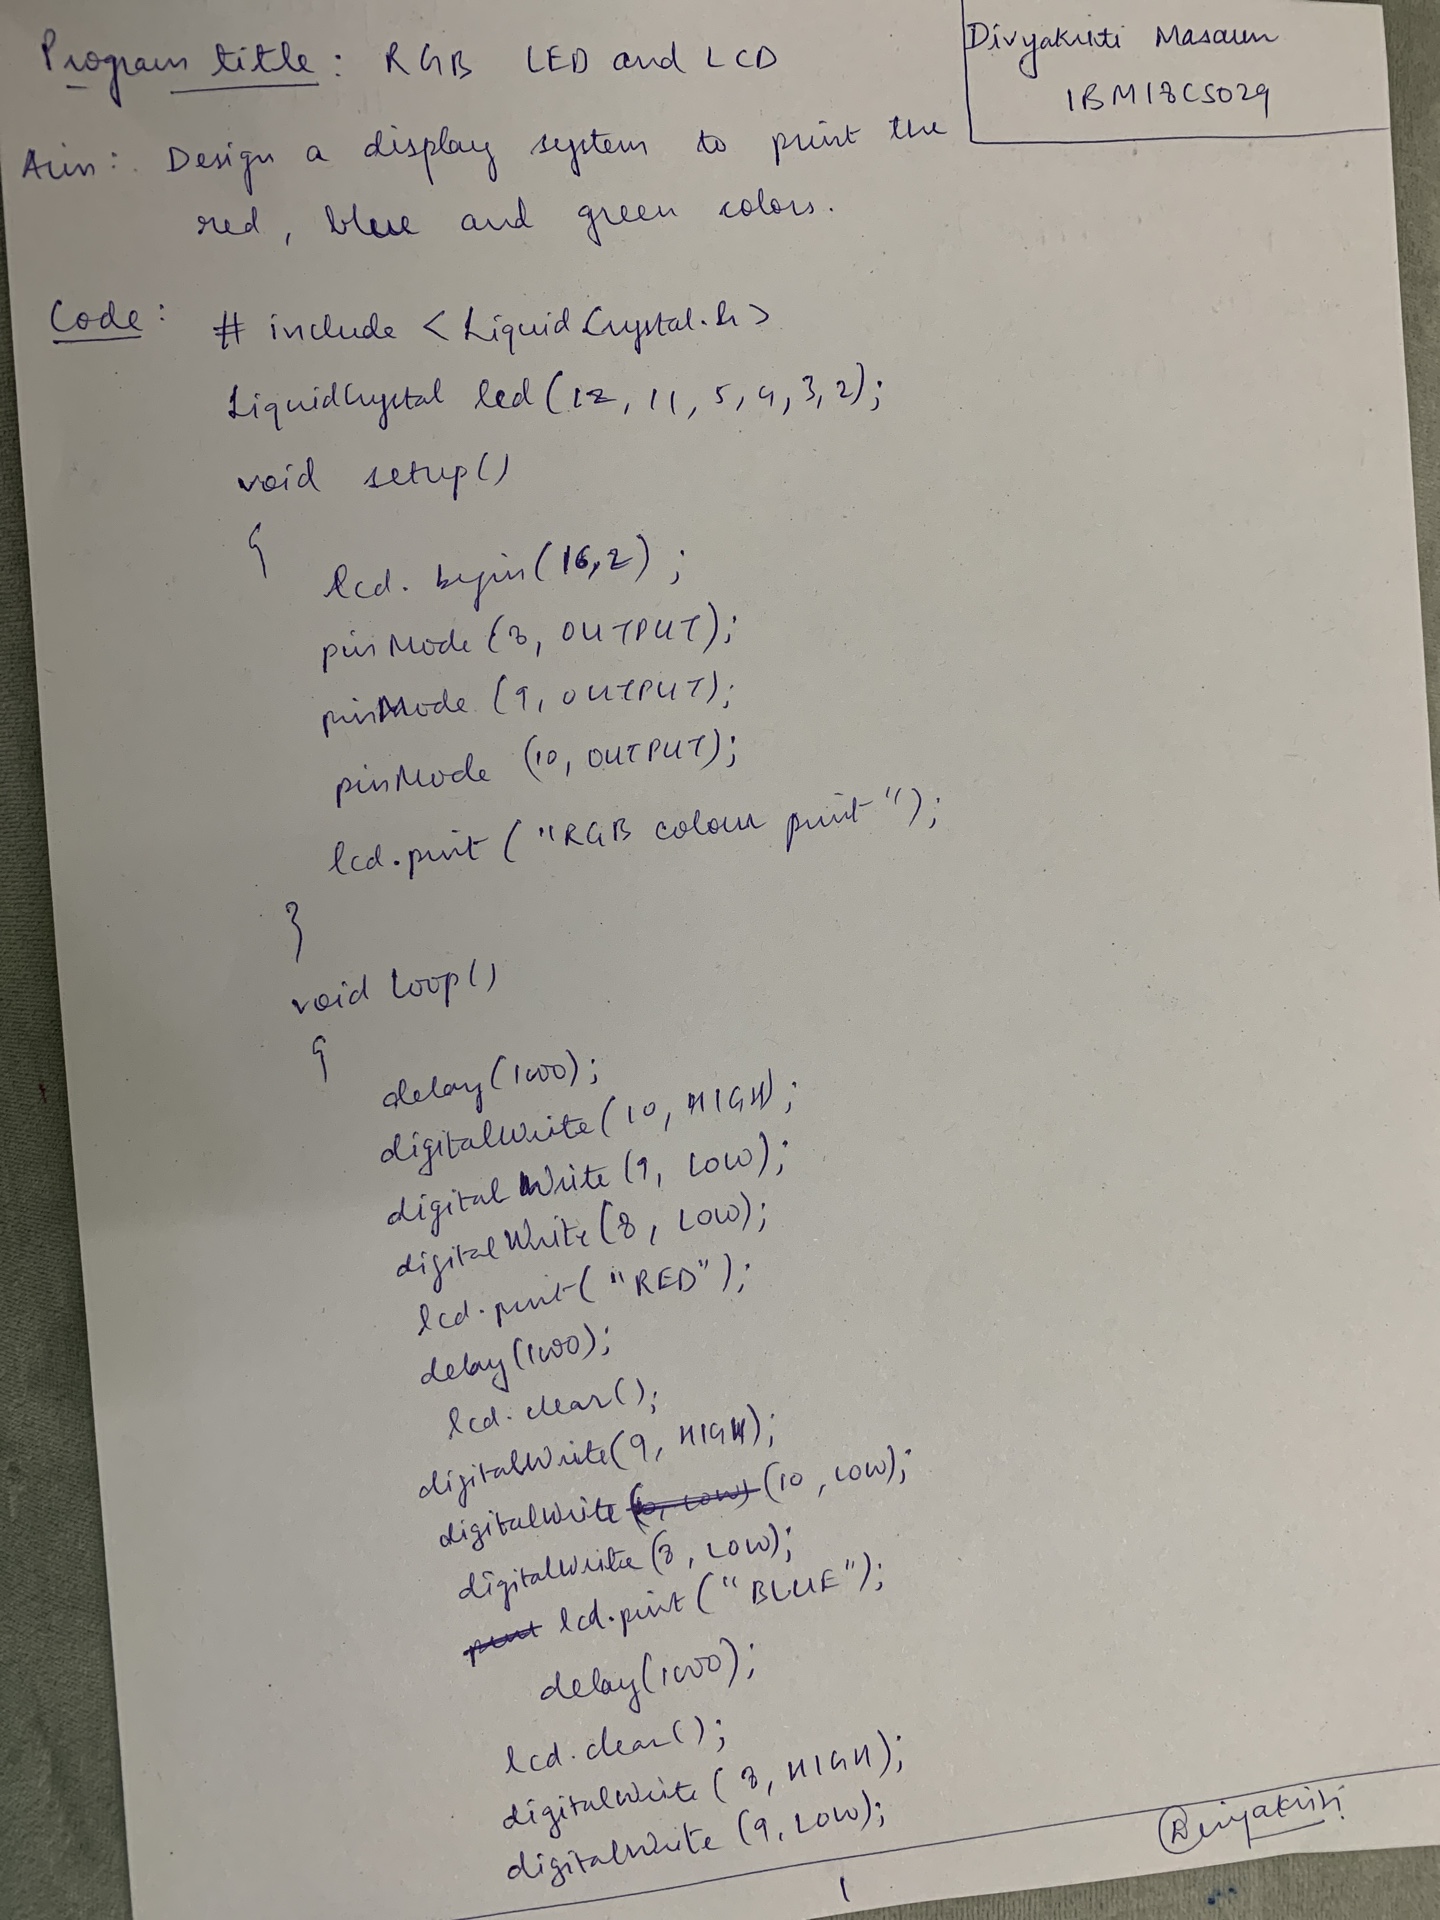 Program title: RGB LED and LCD
Divyakriti Masaun
1BM18CS029
Aim: Design a display system to print the
red, blue and green colors.
Code:
# include <LiquidCrystal.h>
LiquidCrystal lcd (12, 11, 5, 4, 3, 2);
void setup()
{
lcd. begin(16,2);
pinMode (8, OUTPUT);
pinMode (9, OUTPUT);
pinMode (10, OUTPUT);
lcd.print ("RGB colour print");
}
void loop()
{
delay(1000);
digitalWrite(10, HIGH);
digitalWrite(9, LOW);
digitalWrite(8, LOW);
lcd.print("RED");
delay(1000);
lcd.clear();
digitalWrite(9, HIGH);
digitalWrite (10, LOW);
digitalWrite(8, LOW);
lcd.print("BLUE");
delay(1000);
lcd.clear();
digitalWrite(8, HIGH);
digitalWrite (9, LOW);
Divyakriti
1